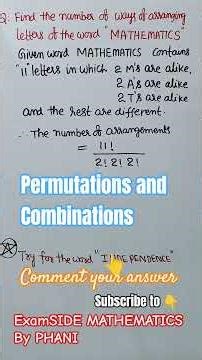 Q: Find the number of ways of arranging
letters of the word "MATHEMATICS"
Given word MATHEMATICS contains
"11" letters in which 2 M's are alike,
2 A's are alike
2 T's are alike
and the rest are different.
∴ The number of arrangements
= 11!
2! 2! 2!
Permutations and
Combinations
Try for the word
Comment your answer
Subscribe to 👇
ExamSIDE MATHEMATICS
By PHANI